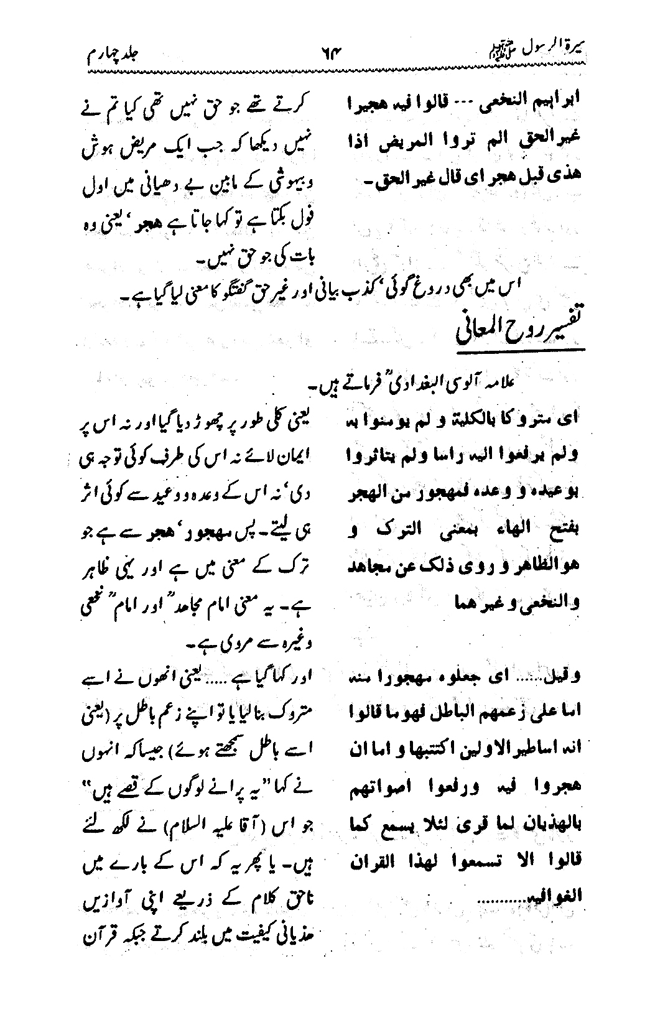 سیرة الرسول ﷺ ۶۴ جلد چہارم
ابراہیم النخعی --- قالوا فیہ ہجیرا
غیر الحق الم تروا المریض اذا
ہذی قیل ہجر ای قال غیر الحق۔
کرتے تھے جو حق نہیں تھی کیا تم نے
نہیں دیکھا کہ جب ایک مریض ہوش
و بیہوشی کے مابین بے دھیانی میں اول
فول بکتا ہے تو کہا جاتا ہے ھجر‘ یعنی وہ
بات کی جو حق نہیں۔
اس میں بھی دروغ گوئی‘ کذب بیانی اور غیر حق گفتگو کا معنی لیا گیا ہے۔
تفسیر روح المعانی
علامہ آلوسی البغدادیؒ فرماتے ہیں۔
ای متروکا بالکلیة و لم یومنوا بہ
ولم یرفعوا الیہ راسا ولم یتاثروا
بوعیدہ و وعدہ فمھجور من الھجر
بفتح الھاء بمعنی الترک و
ھوالظاھر و روی ذلک عن مجاھد
و النخعی و غیر ھما
یعنی کلی طور پر چھوڑ دیا گیا اور نہ اس پر
ایمان لائے نہ اس کی طرف کوئی توجہ ہی
دی‘ نہ اس کے وعدہ و وعید سے کوئی اثر
ہی لیتے۔ پس مھجور‘ ھجر سے ہے جو
ترک کے معنی میں ہے اور یہی ظاہر
ہے۔ یہ معنی امام مجاھدؒ اور امامؒ نخعی
وغیرہ سے مروی ہے۔
و قیل...... ای جعلوہ مھجورا منہ
اما علی زعمھم الباطل فھو ما قالوا
انہ اساطیر الاولین اکتتبھا و اما ان
ھجروا فیہ ورفعوا اصواتھم
بالھذیان لما قری لئلا یسمع کما
قالوا الا تسمعوا لھذا القران
الغوافیہ...........
اور کہا گیا ہے ..... یعنی انھوں نے اسے
متروک بنا لیا یا تو اپنے زعم باطل پر (یعنی
اسے باطل سمجھتے ہوئے) جیسا کہ انہوں
نے کہا ”یہ پرانے لوگوں کے قصے ہیں“
جو اس (آقا علیہ السلام) نے لکھ لئے
ہیں۔ یا پھر یہ کہ اس کے بارے میں
ناحق کلام کے ذریعے اپنی آوازیں
ھذیانی کیفیت میں بلند کرتے جبکہ قرآن